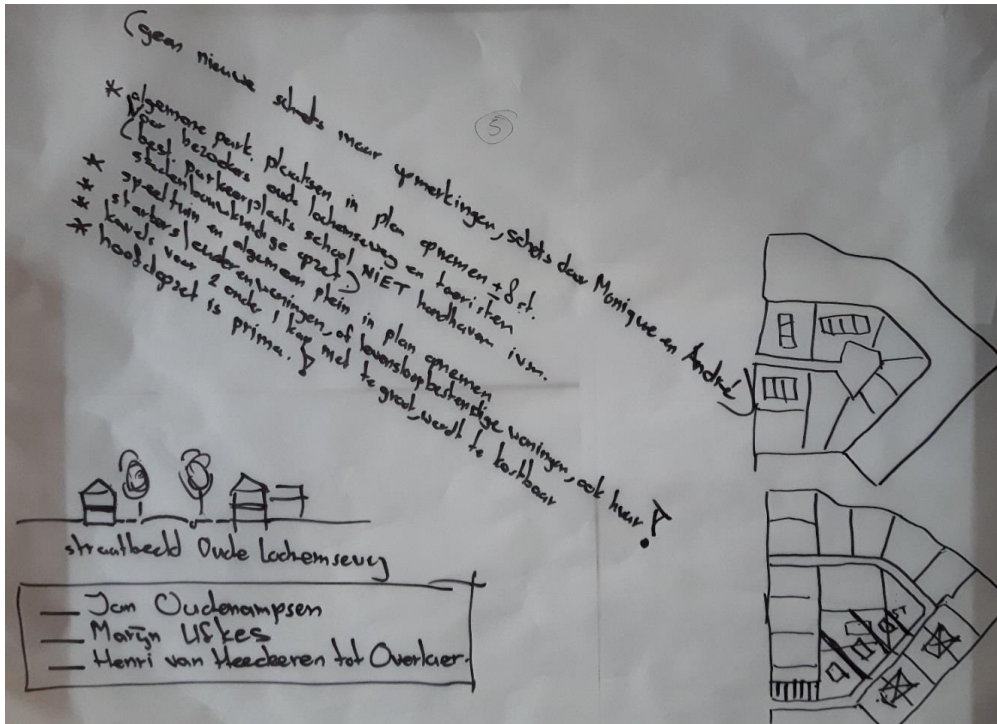 (geen nieuwe schets maar opmerkingen, schets door Monique en André
5
* algemene park. plaatsen in plan opnemen + 8 st.
voor bezoekers oude lochemseweg en toeristen
(best. parkeerplaats school NIET handhaven ivm.
stedenbouwkundige opzet.)
* speeltuin en algemeen plein in plan opnemen
* starters/ouderenwoningen, of levensloopbestendige woningen, ook huur!
* kavels voor 2 onder 1 kap niet te groot, wordt te kostbaar
* hoofdopzet is prima.
straatbeeld Oude Lochemseweg
— Jan Oudenampsen
— Martijn
— Henri van Heeckeren tot Overlaer.